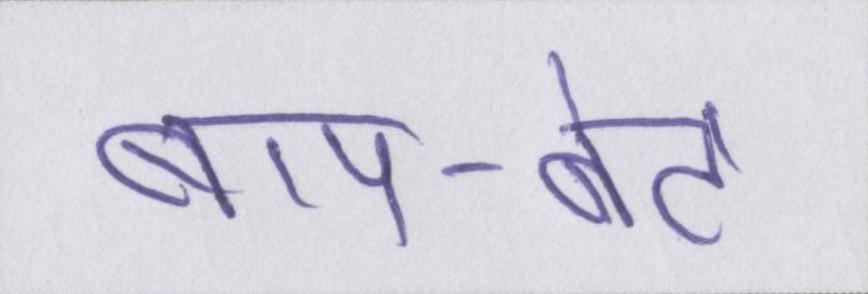 बाप-बेट